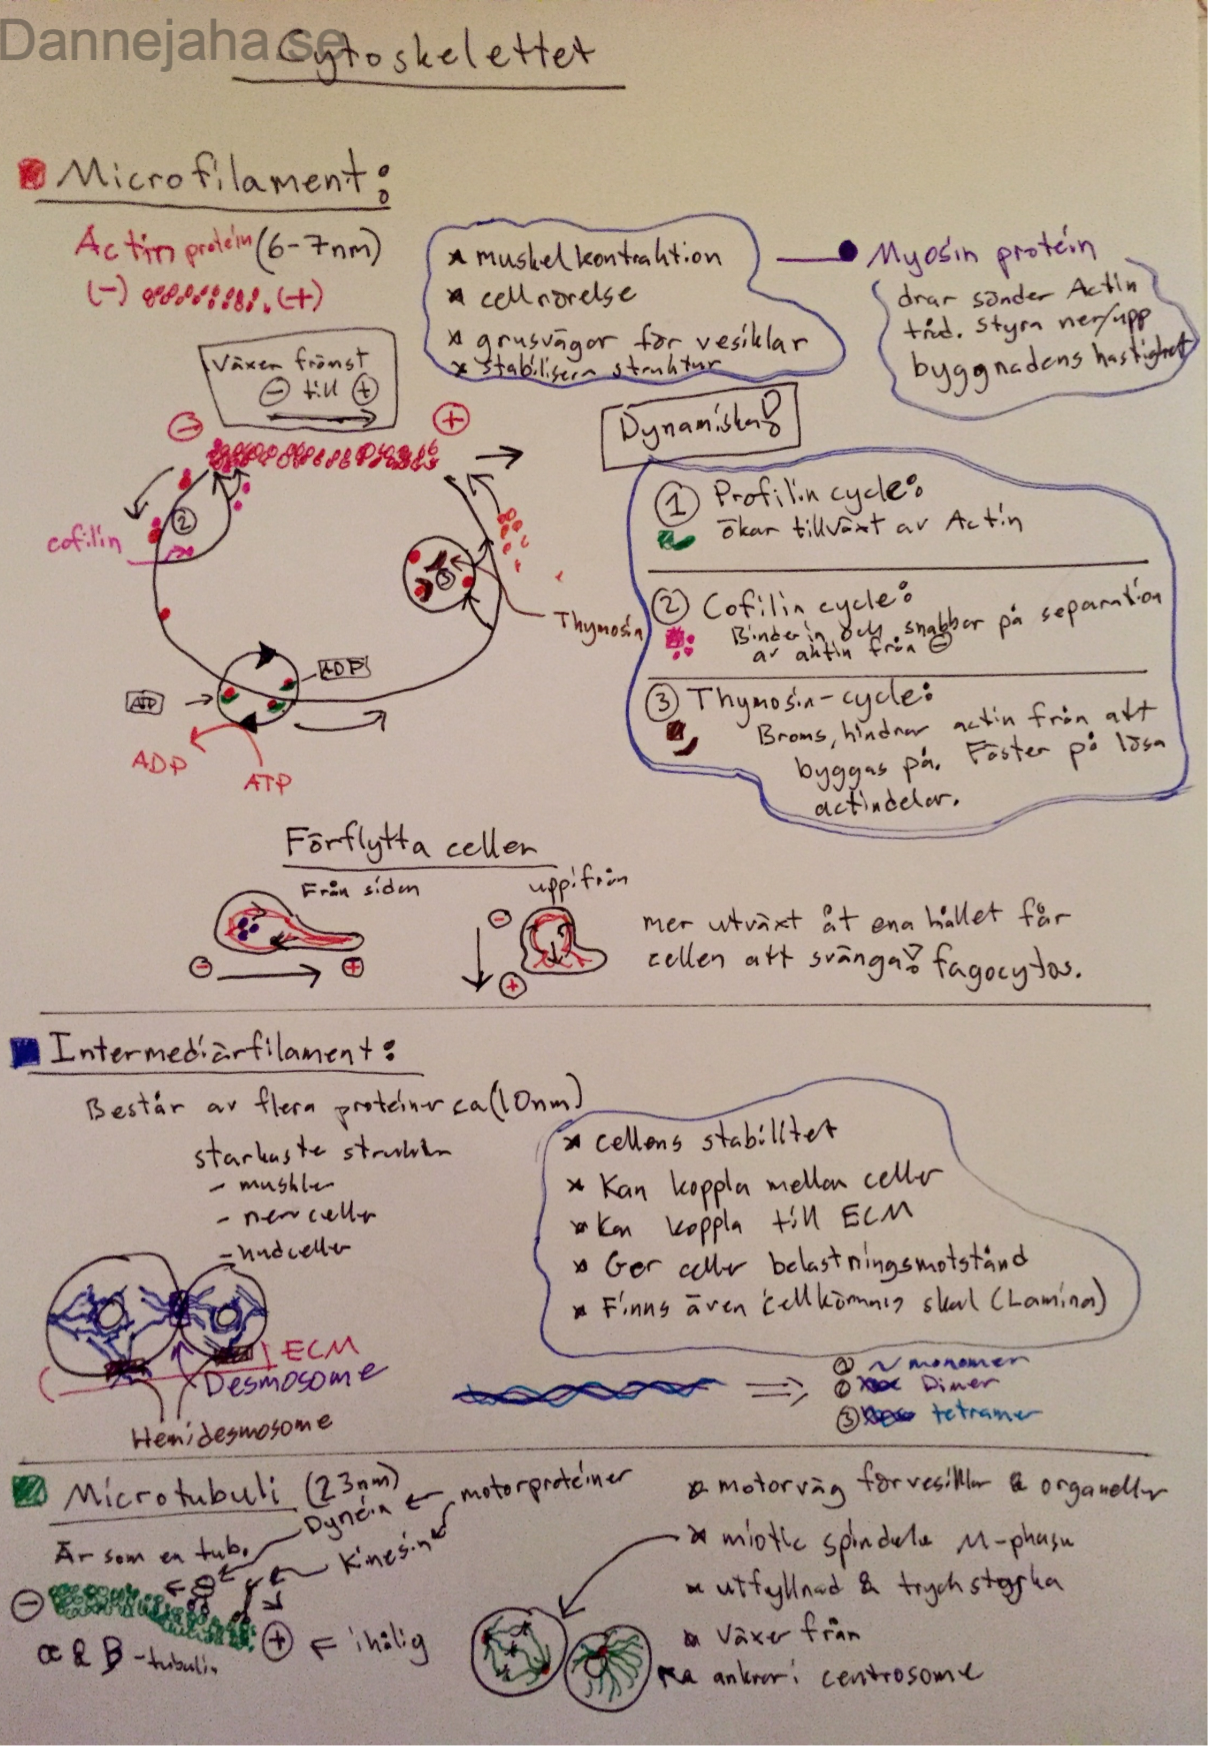 Dannejaha.se
Cytoskelettet
Microfilament:
Actin protein (6-7nm)
(-) (+)
Växer främst
- till +
* muskelkontraktion
* cellrörelse
* grusvägar för vesiklar
* stabilisera struktur
Myosin protein
drar sönder Actin
tråd. Styra ner/upp
byggnadens hastighet
- +
cofilin
2
3
Thymosin
ATP
ADP
ADP
ATP
Dynamiska!
1 Profilin cycle:
ökar tillväxt av Actin
2 Cofilin cycle:
Binder in och snabbar på separation
av aktin från -
3 Thymosin-cycle:
Broms, hindrar actin från att
byggas på. Fäster på lösa
actindelar.
Förflytta celler
Från sidan
uppifrån
- +
-
+
mer utväxt åt ena hållet får
cellen att svänga! fagocytos.
Intermediärfilament:
Består av flera proteiner ca (10nm)
starkaste
- muskler
- nervceller
- hudceller
* cellens stabilitet
* Kan koppla mellan celler
* Kan koppla till ECM
* Ger celler belastningsmotstånd
* Finns även i cellkärnans skal (Lamina)
ECM
Desmosome
Hemidesmosome
⇒
1 ~ monomer
2 Dimer
3 tetramer
Microtubuli (23nm)
Dynein ← motorproteiner
Kinesin
Är som en tub.
- + ← ihålig
α & β -tubulin
* motorväg för vesiklar & organeller
* miotic spindele M-phasen
* utfyllnad & tryckstyrka
* växer från
* ankrar i centrosome